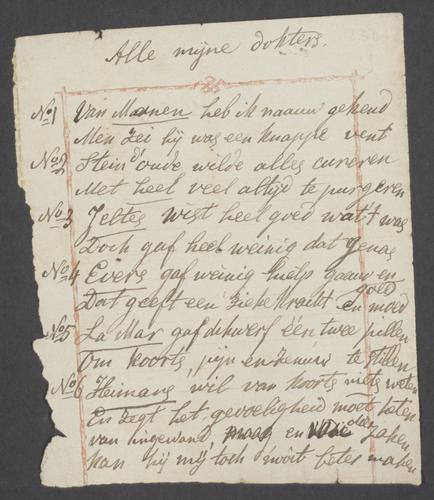 Alle mijne dokters.
No 1 Van Maanen heb ik naauw gekend
Men zei hij was een knappe vent
No 2 Stein d' oude wilde alles cureren
Met heel veel altijd te purgeren
No 3 Jeltes wist heel goed wat 't was
Doch gaf heel weinig dat genas
No 4 Evers gaf weinig hulp gaauw en goed
Dat geeft een zieke kracht en moed
No 5 La Mar gaf dikwerf één twee pillen
Om koorts, pijn en zenuw te stillen
No 6 Heimans wil van koorts niets weten
En zegt het gevoeligheid moet heten
van ingewand, maag en die zaken
kan hij mij toch nooit beter maken